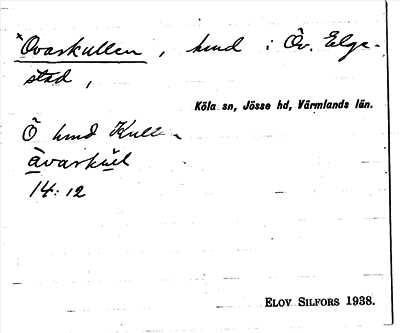 *Ovarkullen, hmd i Öv. Elge-
stad,
Köla sn, Jösse hd, Värmlands län.
Ö hmd Kullen
åvarkùl
14: 12
ELOV SILFORS 1938.